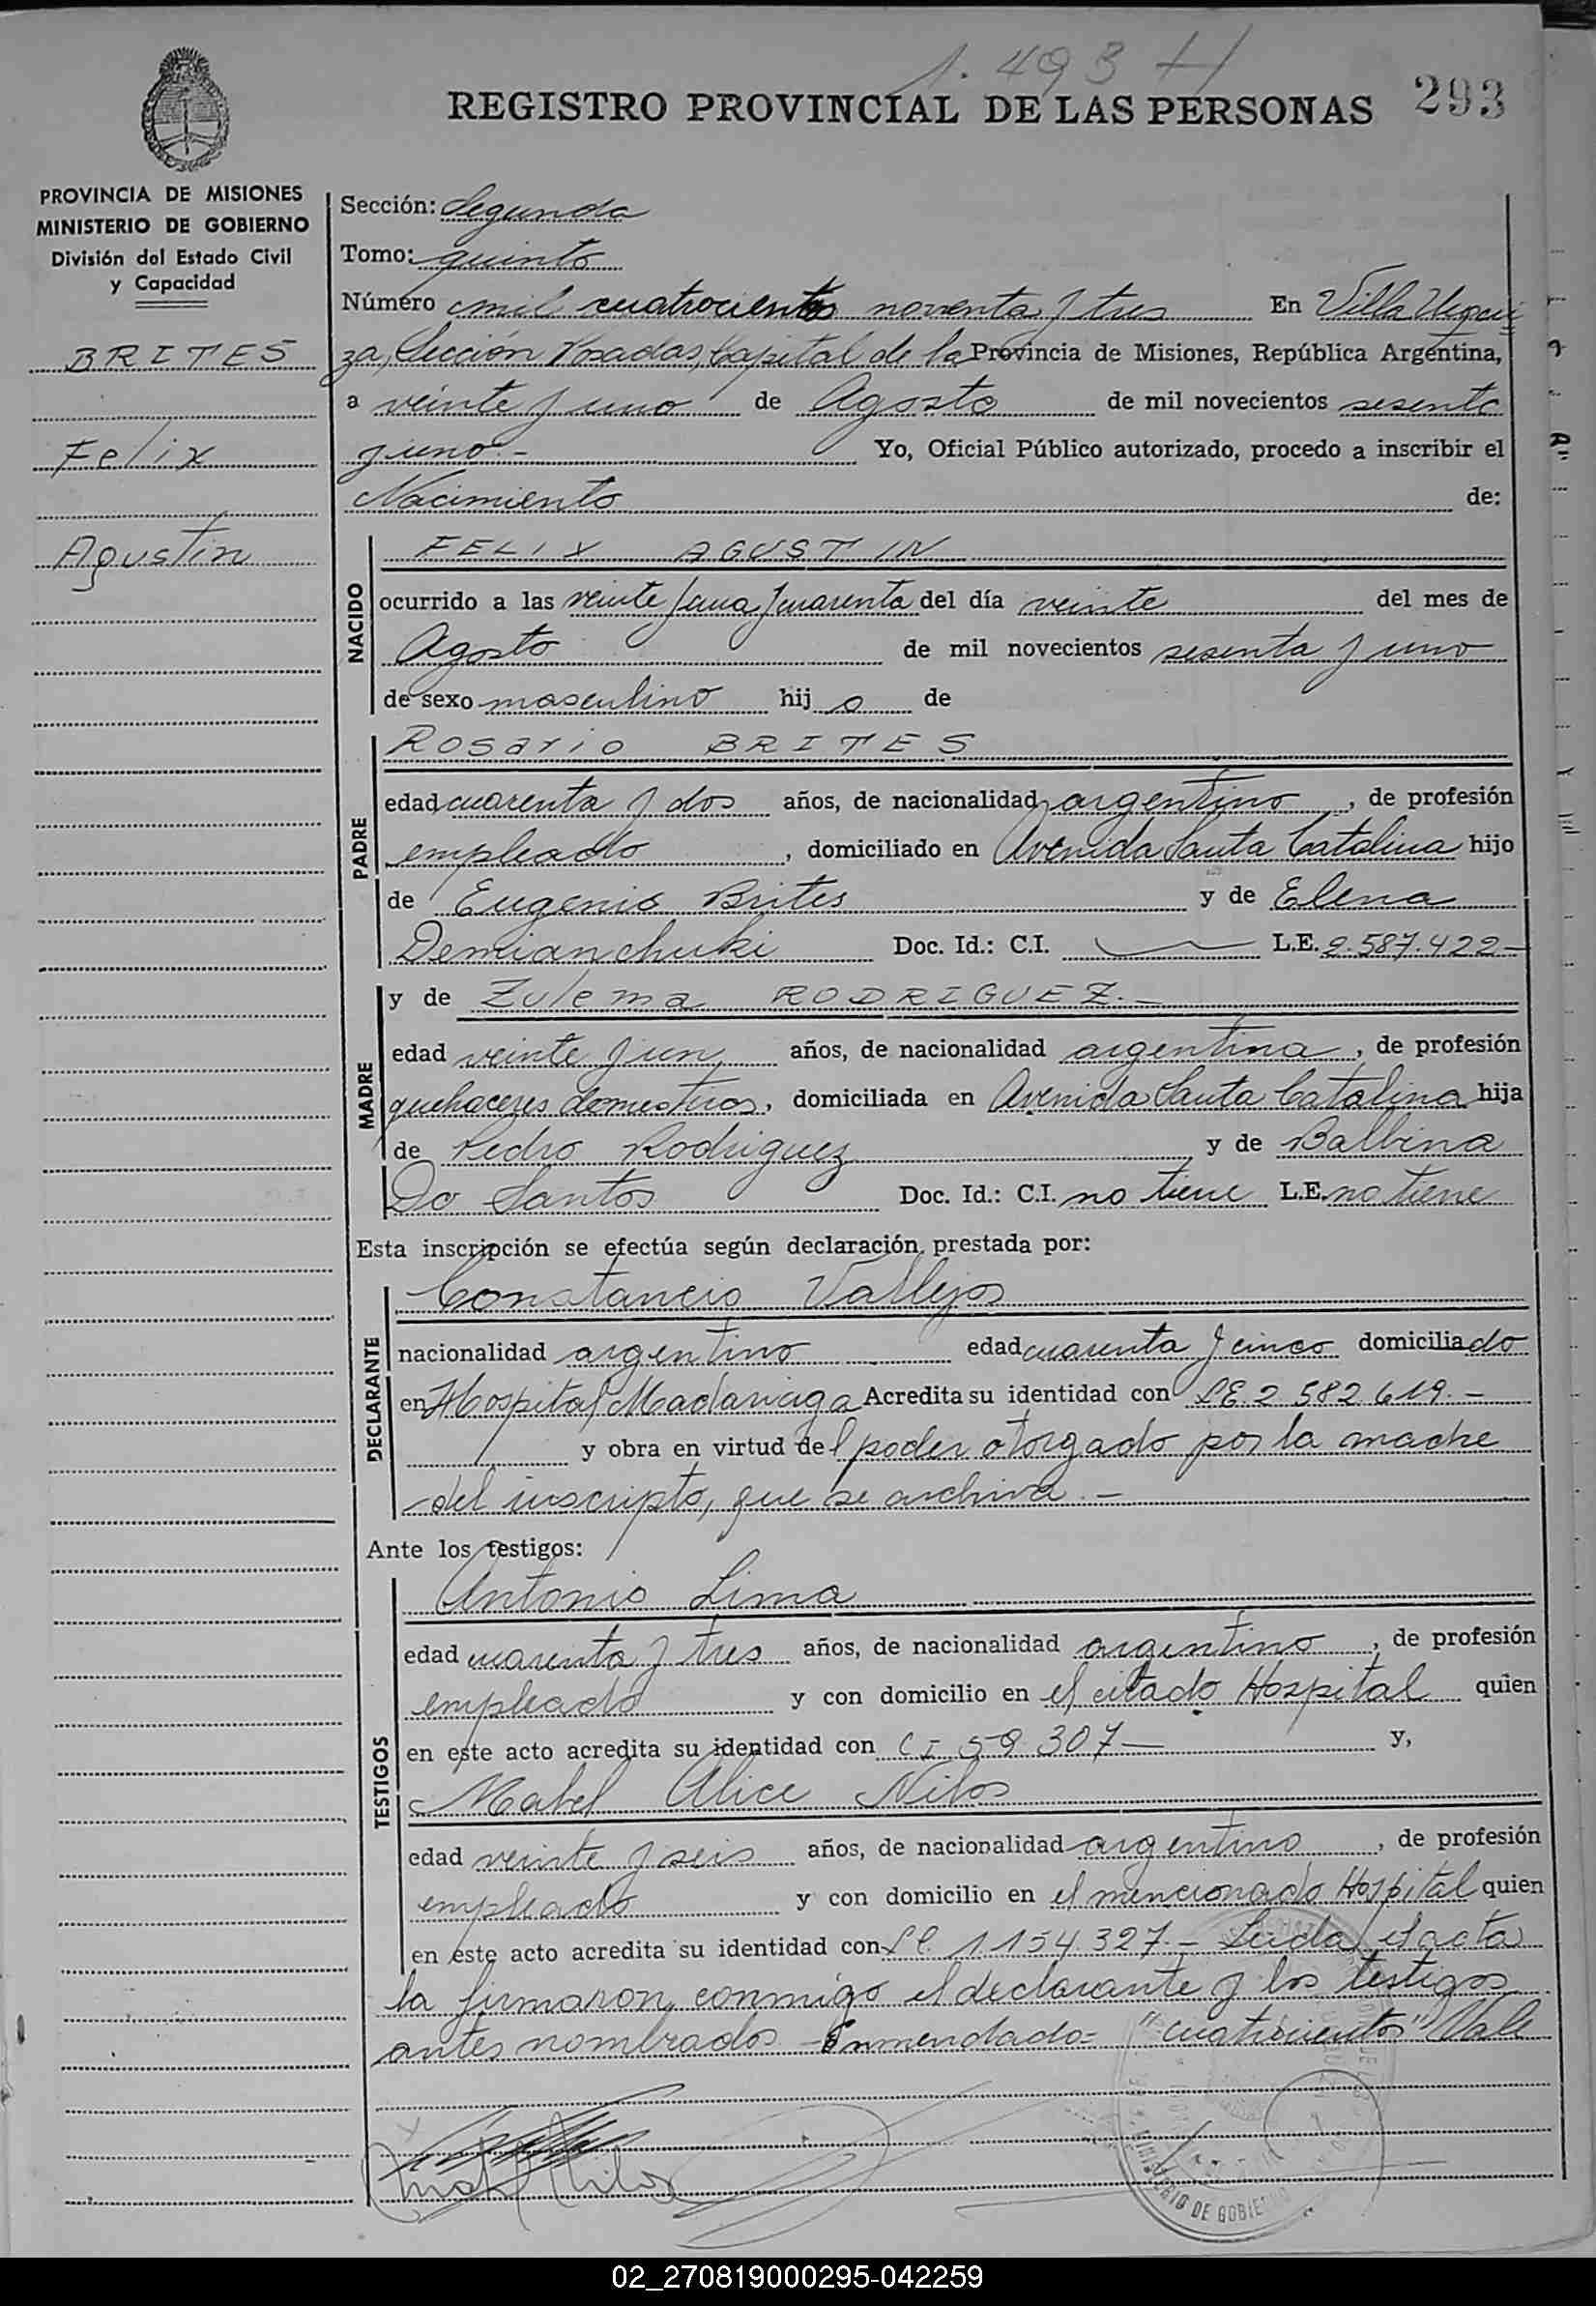 1.493 H
REGISTRO PROVINCIAL DE LAS PERSONAS 293
PROVINCIA DE MISIONES
MINISTERIO DE GOBIERNO
División del Estado Civil
y Capacidad
BRITES
Felix
Agustin
Sección: Segunda
Tomo: quinto
Número mil cuatrocientos noventa y tres En Villa Urqui
za, Sección Posadas, Capital de la Provincia de Misiones, República Argentina,
a veinte y uno de Agosto de mil novecientos sesenta
y uno.- Yo, Oficial Público autorizado, procedo a inscribir el
Nacimiento de:
NACIDO
FELIX AGUSTIN
ocurrido a las veinte y una y cuarenta del día veinte del mes de
Agosto de mil novecientos sesenta y uno
de sexo masculino hij o de
PADRE
Rosario BRITES
edad cuarenta y dos años, de nacionalidad argentino, de profesión
empleado, domiciliado en Avenida Santa Catalina hijo
de Eugenio Brites y de Elena
Demianchuki Doc. Id.: C.I. L.E. 2.587.422-
MADRE
y de Zulema RODRIGUEZ.-
edad veinte y un años, de nacionalidad argentina, de profesión
quehaceres domesticos, domiciliada en Avenida Santa Catalina hija
de Pedro Rodriguez y de Balbina
Do Santos Doc. Id.: C.I. no tiene L.E. no tiene
Esta inscripción se efectúa según declaración prestada por:
DECLARANTE
Constancio Vallejos
nacionalidad argentino edad cuarenta y cinco domiciliado
en Hospital Madariaga Acredita su identidad con LE. 2 582.619.-
y obra en virtud del poder otorgado por la madre
del inscripto, que se archiva.-
Ante los testigos:
TESTIGOS
Antonio Lima
edad cuarenta y tres años, de nacionalidad argentino, de profesión
empleado y con domicilio en el citado Hospital quien
en este acto acredita su identidad con C I 59 307- y,
Mabel Alice Nilos
edad veinte y seis años, de nacionalidad argentino, de profesión
empleado y con domicilio en el mencionado Hospital quien
en este acto acredita su identidad con LC. 1154327.- Leida el acta
la firmaron conmigo el declarante y los testigos
antes nombrados - Enmendado= "cuatrocientos" Vale
MINISTERIO DE GOBIERNO
02_270819000295-042259